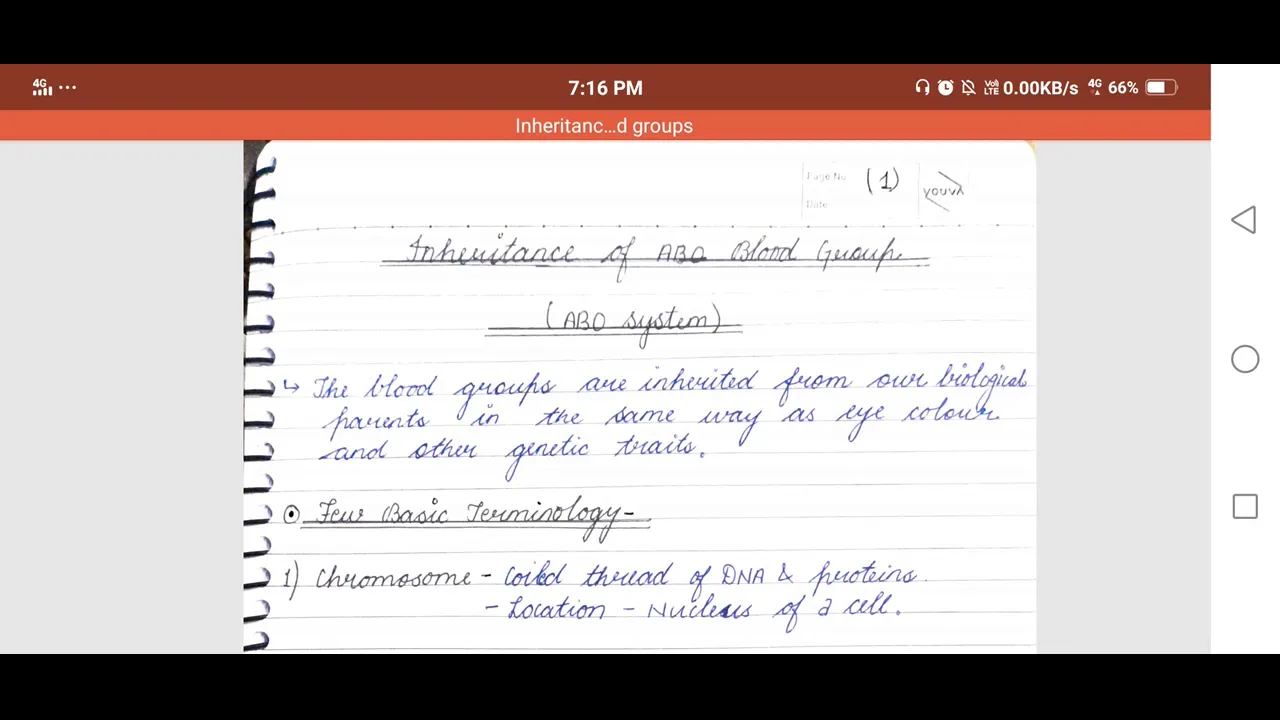 4G ... 7:16 PM VoLTE 0.00KB/s 4G 66%
Inheritanc...d groups
Page No (1) youva
Date
Inheritance of ABO Blood Group.
(ABO system)
↳ The blood groups are inherited from our biological
parents in the same way as eye colour
and other genetic traits.
⊙ Few Basic Terminology-
1) Chromosome - Coiled thread of DNA & proteins.
- Location - Nucleus of a cell.